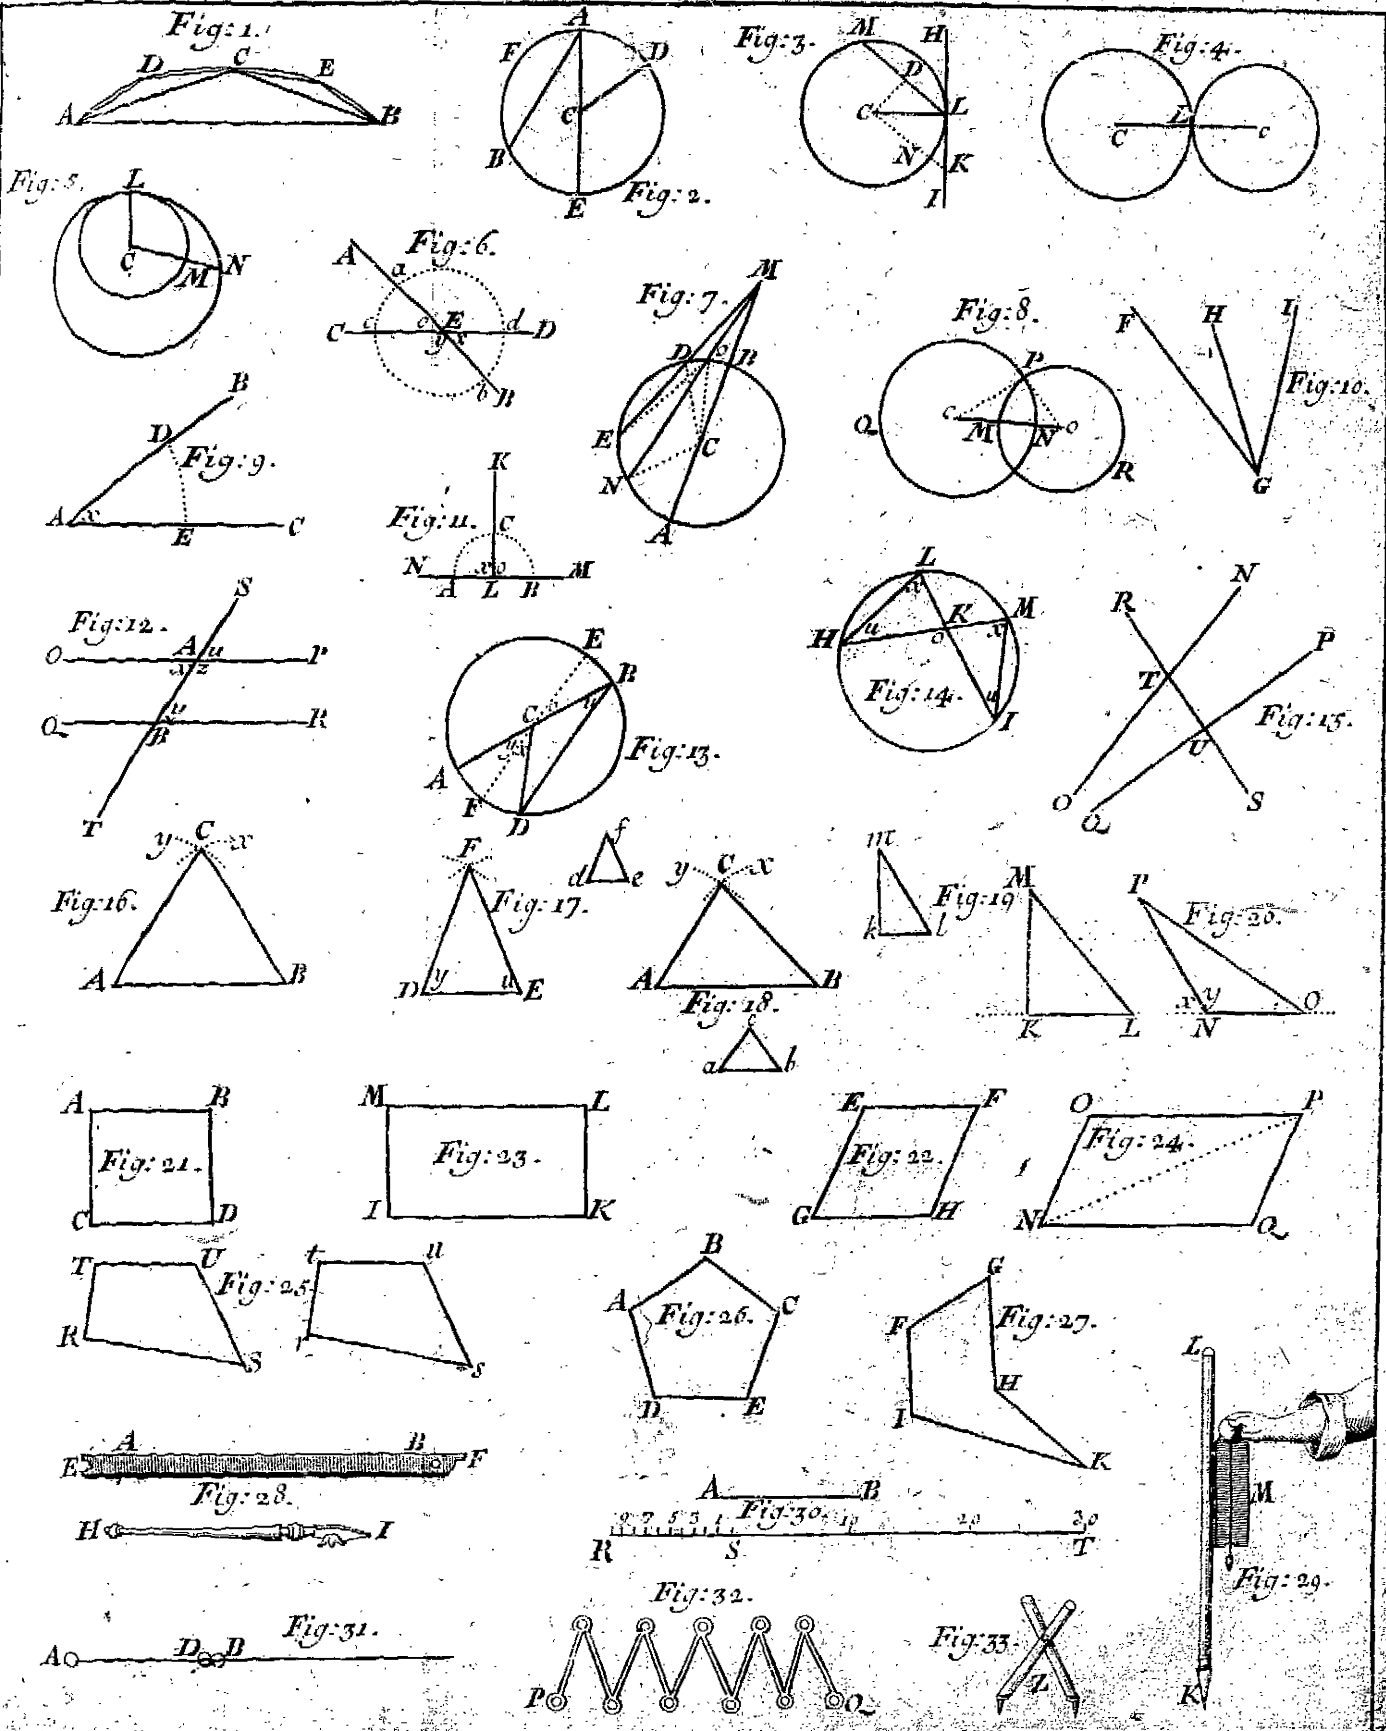 Fig: 1.
D C E
A B
A
F D
C
B
E
Fig: 2.
Fig: 3.
M H
D
C L
N K
I
Fig: 4.
C L c
Fig: 5.
L
C M N
Fig: 6.
A a
C c o E d D
y x
b B
Fig: 7.
M
D o B
E C
N
A
Fig: 8.
P
Q c M N o
R
Fig: 9.
B
D
A x E C
Fig: 10.
F H I
G
Fig: 11.
K
C
N x o M
A L B
Fig: 12.
S
O A u P
x z
Q u R
B
T
Fig: 13.
E
B
C o u
y x
A
F D
Fig: 14.
L
x
H u K M
o x
u
I
Fig: 15.
R N
P
T
U
O Q S
Fig: 16.
y C x
A B
Fig: 17.
F
y u
D E
f
d e
Fig: 18.
y C x
A B
c
a b
Fig: 19
m
k l
M
K L
Fig: 20.
P
x y
N O
Fig: 21.
A B
C D
Fig: 23.
M L
I K
Fig: 22.
E F
G H
Fig: 24.
O P
N Q
Fig: 25.
T U
R S
t u
r s
Fig: 26.
B
A C
D E
Fig: 27.
G
F
H
I K
A B
E F
Fig: 28.
H I
L
I
M
Fig: 29.
K
A B
Fig: 30.
9 7 5 3 1 10 20 30
R S T
Fig: 31.
A D B
Fig: 32.
P Q
Fig: 33.
Z